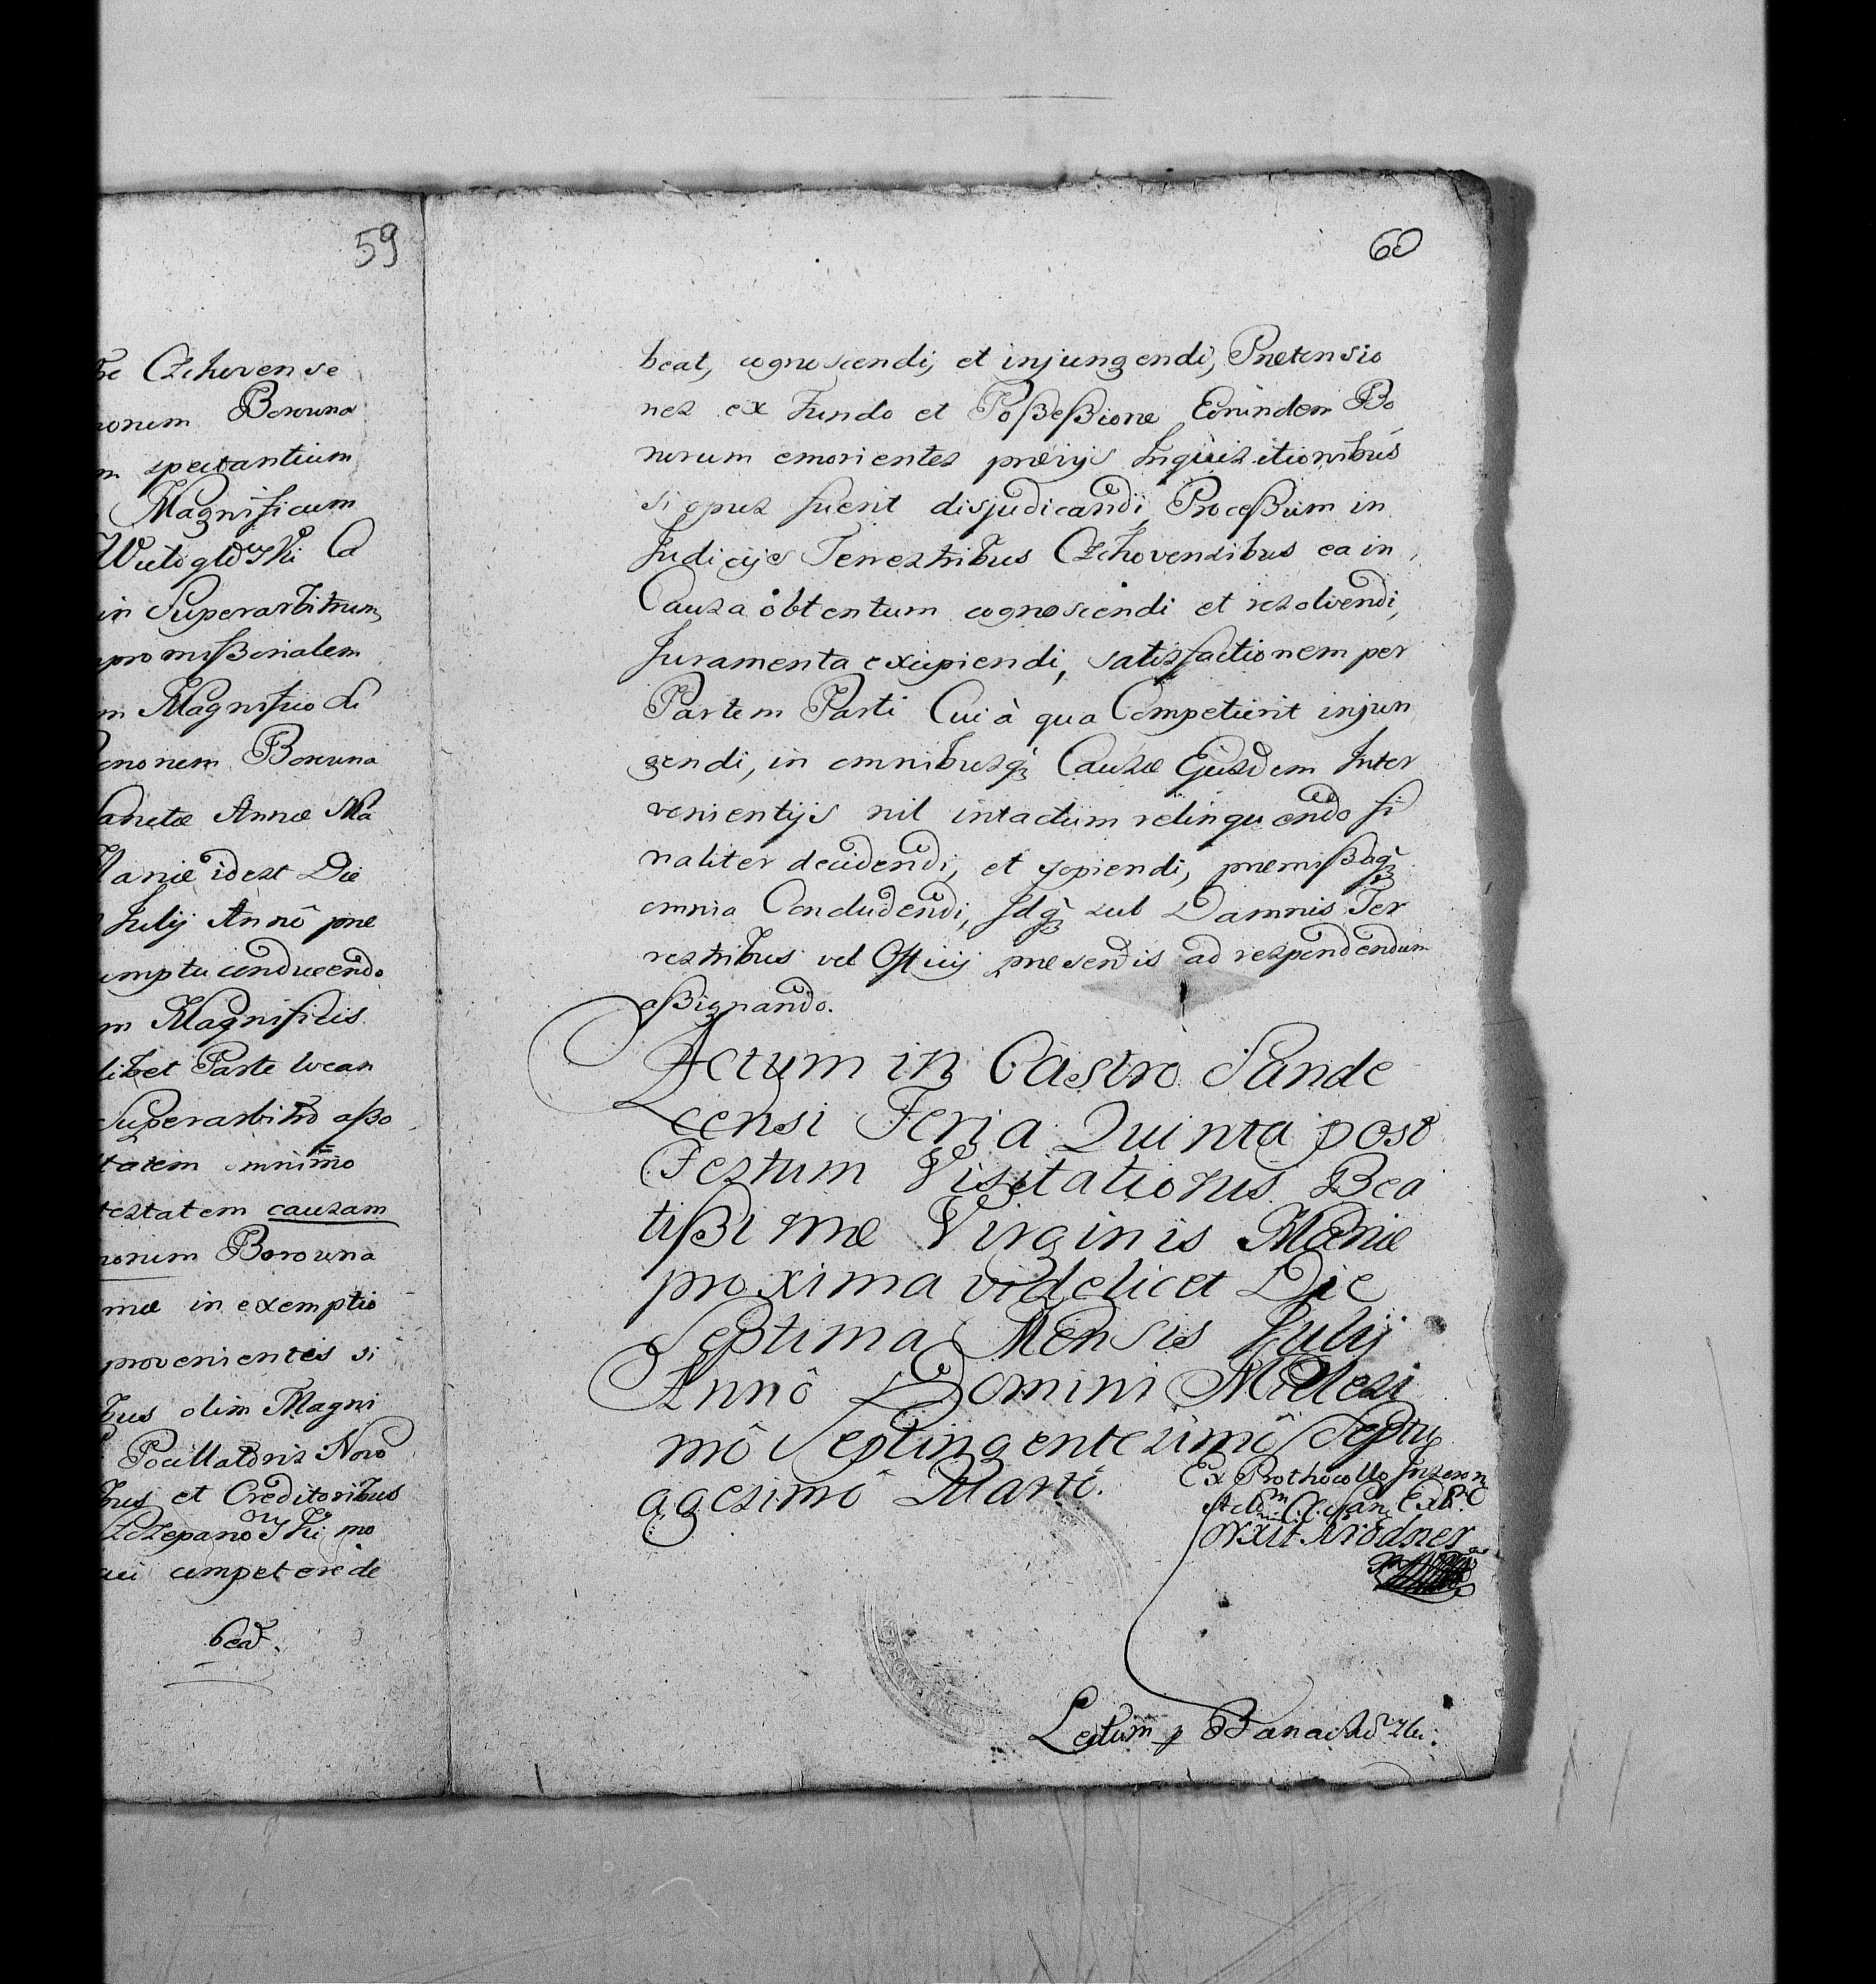 59
Czchovense
Boruna
spectantium
Magnificum
in Superarbitrum
promißorialem
Magnifico
Boruna
Sanctæ Annæ
Mariæ id est Die
Julij Annô præ
conducendo
Magnificis
libet Parte locan
Superarbitro aßo
omnimo
causam
Borowna
in exemptio
provenientes si
olim Magni
Pocillatoris Novo
et Creditoribus
mo
competere de
beat.
60
beat, cognoscendi, et injungendi, Prætensio
nes ex Fundo et Poßeßione Eorundem Bo
norum emorientes prævijs Inquisitionibus
si opus fuerit disjudicandi, Proceßum in
Judicijs Terrestribus Czchovensibus ea in
Causa obtentum cognoscendi et resolvendi,
Juramenta excipiendi, satisfactionem per
Partem Parti Cui à qua Competierit injun
gendi, in omnibusq; Causæ Ejusdem Inter
venientijs nil intactum relinquendo fi
naliter decidendi, et sopiendi, præmißaq;
omnia Concludendi, Idq; sub Damnis Ter
restribus vel Officij præsentis ad respondendum
aßignando.
Actum in Castro Sande
censi Feria Quinta post
Festum Visitationis Bea
tißimæ Virginis Mariæ
proxima videlicet Die
Septima Mensis Julij
Annô Domini Milesi
mô Septingentesimô Septu
agesimô Quarto.
Ex Prothocollo Inscron
Lectum p Banachowski